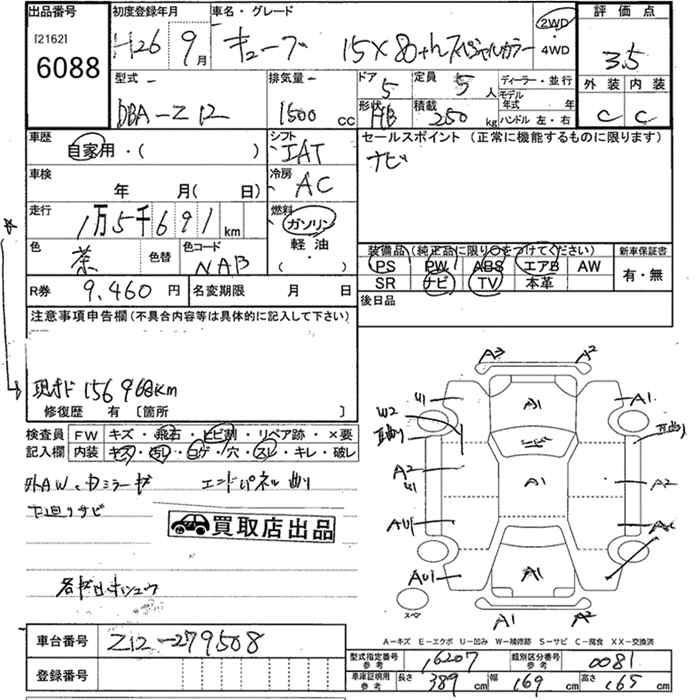 出品番号
[2162]
6088
初度登録年月
H26 9月
車名・グレード
キューブ 15X
2WD
・
4WD
評価点
3.5
外装 内装
C C
型式
DBA-Z12
排気量
1500 cc
ドア
5
形状
HB
定員
5 人
積載
250 kg
ディーラー・並行
モデル
年式 年
ハンドル 左・右
車歴
自家用・( )
シフト
IAT
セールスポイント (正常に機能するものに限ります)
ナビ
車検
年 月( 日)
冷房
AC
走行
1万5千691 km
燃料
ガソリン
軽油
( ・ )
色
茶
色替
色コード
NAB
装備品(純正品に限り○をつけてください)
PS PW ABS エアB AW
SR ナビ TV 本革
新車保証書
有・無
R券 9,460 円
名変期限 月 日
後日品
注意事項申告欄(不具合内容等は具体的に記入して下さい)
156968km
修復歴 有 [箇所 ]
検査員
記入欄
FW キズ・飛石・ヒビ割・リペア跡・×要
内装 キズ・汚レ・コゲ・穴・スレ・キレ・破レ
外AW、カミラーキズ エンドパネル曲り
下廻りサビ
買取店出品
A3 A2
U1 A1 A1
W2
A2 A1 A2
U1
AU1
AU1 A1
A1 A2
スペア
A-キズ E-エクボ U-凹み W-補修跡 S-サビ C-腐食 XX-交換済
車台番号 Z12-279508
登録番号
型式指定番号
参考
16207
類別区分番号
参考
0081
車庫証明用
参考
長さ 389 cm 幅 169 cm 高さ 165 cm